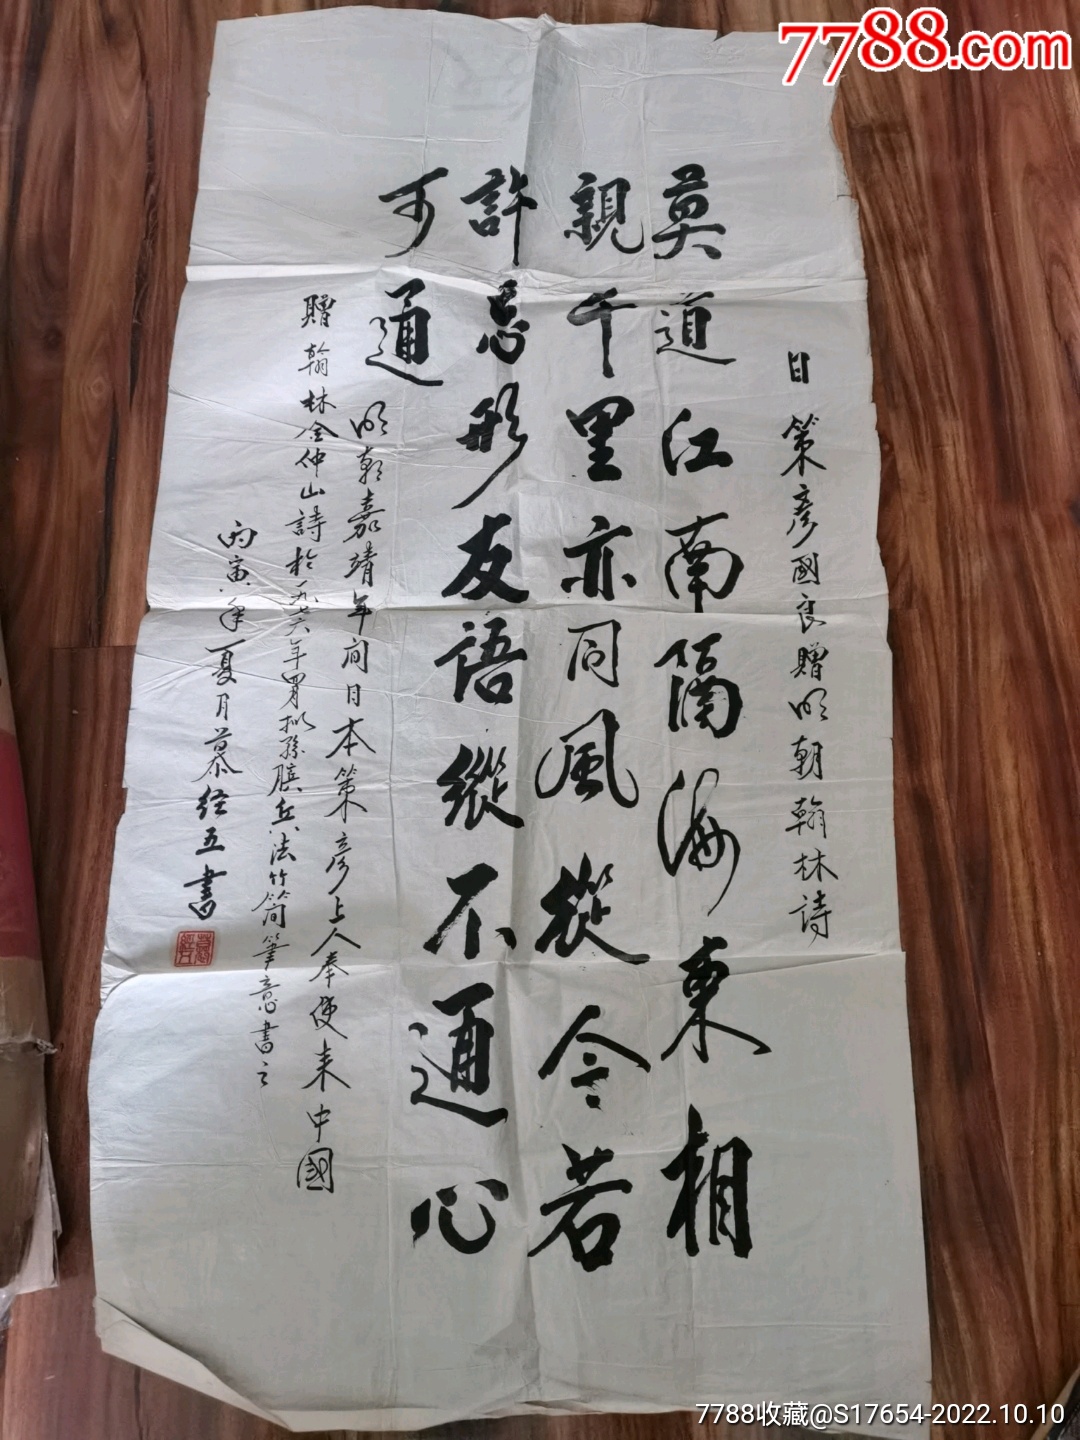 7788.com
日策彦國良贈明朝翰林詩
莫道江南隔海東相
親千里亦同風從今若
許忘形友語縱不通心
可通
明朝嘉靖年间日本策彦上人奉使来中國
贈翰林金仲山詩於一九七六年四月拟孫膑兵法竹简筆意書之
丙寅年夏月慕经五書
7788收藏@S17654-2022.10.10